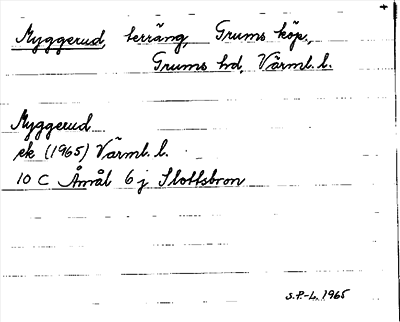 Myggerud, terräng, Grums köp.,
Grums hd, Värml. l.
Myggerud
ek (1965) Värml. l.
10 C Åmål 6 j Slottsbron
S.P.-L. 1965